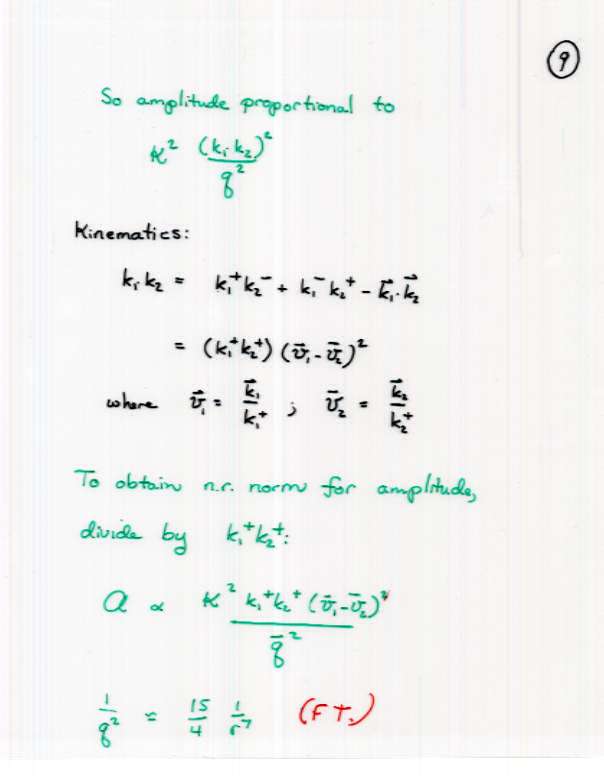 9
So amplitude proportional to
κ² (k₁·k₂)² / q²
Kinematics:
k₁·k₂ = k₁⁺k₂⁻ + k₁⁻k₂⁺ - k⃗₁·k⃗₂
= (k₁⁺k₂⁺) (v⃗₁-v⃗₂)²
where v⃗₁ = k⃗₁ / k₁⁺ ; v⃗₂ = k⃗₂ / k₂⁺
To obtain n.r. norm for amplitude,
divide by k₁⁺k₂⁺:
a ∝ κ² k₁⁺k₂⁺ (v⃗₁-v⃗₂)² / q⃗²
1/q² = 15/4 1/r⁷ (F T.)